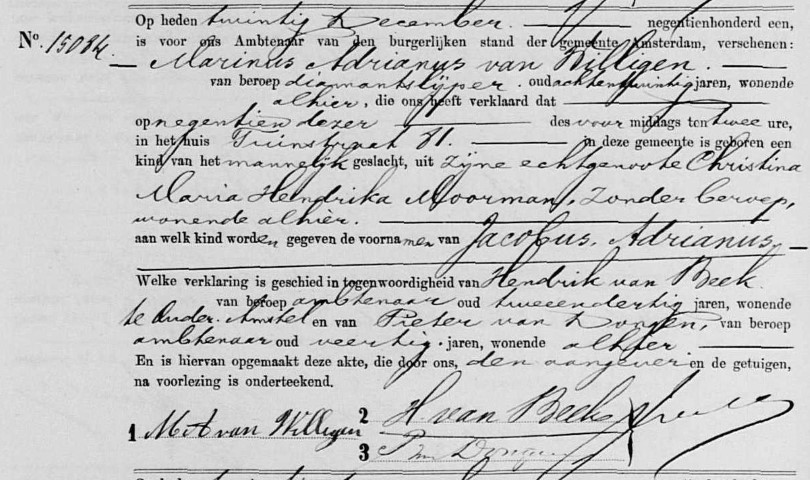 Op heden twintig December. negentienhonderd een,
No. 15084. is voor ons Ambtenaar van den burgerlijken stand der gemeente Amsterdam, verschenen:
Marinus Adrianus van Willigen.
van beroep diamantslijper. oud achtentwintig jaren, wonende
alhier, die ons heeft verklaard dat
op negentien dezer des voor middags ten twee ure,
in het huis Tuinstraat 81. in deze gemeente is geboren een
kind van het mannelijk geslacht, uit zijne echtgenoote Christina
Maria Hendrika Moorman, zonder beroep,
wonende alhier.
aan welk kind worden gegeven de voornamen van Jacobus, Adrianus,
Welke verklaring is geschied in tegenwoordigheid van Hendrik van Beek
van beroep ambtenaar oud tweeendertig jaren, wonende
te Ouder-Amstel en van Pieter van Dongen, van beroep
ambtenaar oud veertig. jaren, wonende alhier
En is hiervan opgemaakt deze akte, die door ons, den aangever en de getuigen,
na voorlezing is onderteekend.
1 M A van Willigen 2 H. van Beek
3 P van Dongen